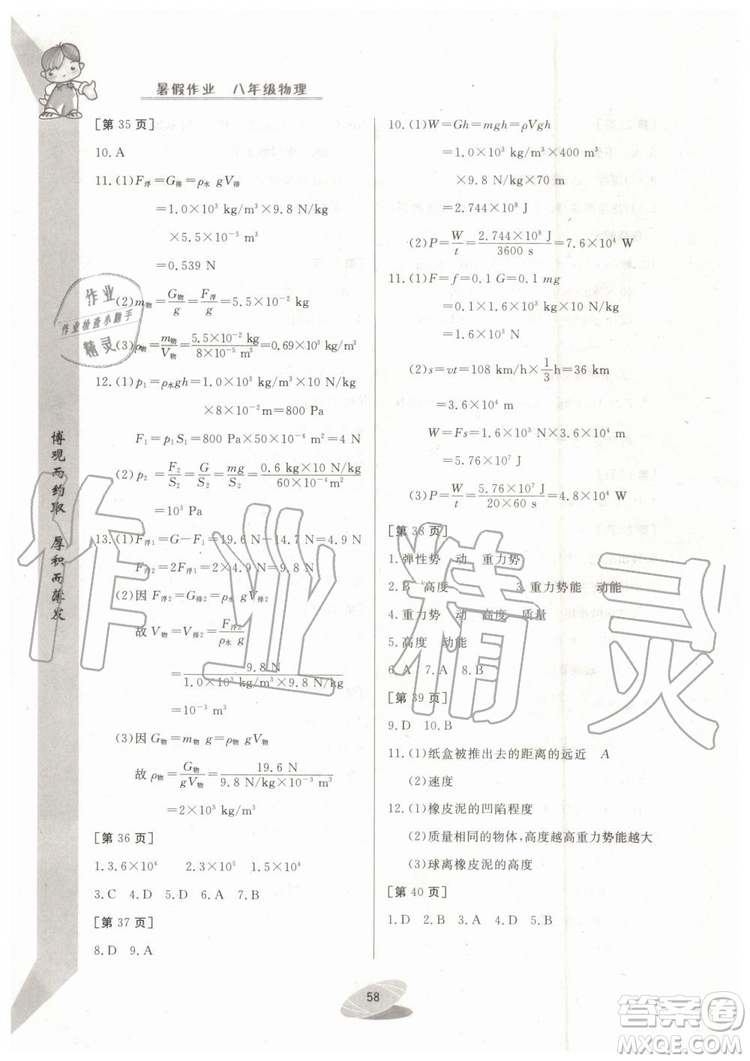 暑假作业 八年级物理
[第 35 页]
10. A
11. (1)F浮=G排=ρ水 gV排
=1.0×10³ kg/m³×9.8 N/kg
×5.5×10⁻⁵ m³
=0.539 N
(2)m物=G物/g=F浮/g=5.5×10⁻² kg
(3)ρ物=m物/V物=5.5×10⁻² kg/8×10⁻⁵ m³=0.69×10³ kg/m³
12. (1)p₁=ρ水gh=1.0×10³ kg/m³×10 N/kg
×8×10⁻² m=800 Pa
F₁=p₁S₁=800 Pa×50×10⁻⁴ m²=4 N
(2)p₂=F₂/S₂=G/S₂=mg/S₂=0.6 kg×10 N/kg/60×10⁻⁴ m²
=10³ Pa
13. (1)F浮1=G-F₁=19.6 N-14.7 N=4.9 N
F浮2=2F浮1=2×4.9 N=9.8 N
(2)因 F浮2=ρ水 gV排2=ρ水 gV物
故 V物=V排2=F浮2/ρ水 g
=9.8 N/1.0×10³ kg/m³×9.8 N/kg
=10⁻³ m³
(3)因 G物=m物 g=ρ物 gV物
故 ρ物=G物/gV物=19.6 N/9.8 N/kg×10⁻³ m³
=2×10³ kg/m³
[第 36 页]
1. 3.6×10⁴ 2. 3×10⁵ 1.5×10⁴
3. C 4. D 5. A 6. D 7. B
[第 37 页]
8. D 9. A
10. (1)W=Gh=mgh=ρVgh
=1.0×10³ kg/m³×400 m³
×9.8 N/kg×70 m
=2.744×10⁸ J
(2)P=W/t=2.744×10⁸ J/3600 s=7.6×10⁴ W
11. (1)F=f=0.1 G=0.1mg
=0.1×1.6×10³ kg×10 N/kg
=1.6×10³ N
(2)s=vt=108 km/h×1/3 h=36 km
=3.6×10⁴ m
W=Fs=1.6×10³ N×3.6×10⁴ m
=5.76×10⁷ J
(3)P=W/t=5.76×10⁷ J/20×60 s=4.8×10⁴ W
[第 38 页]
1. 弹性势 动 重力势
2. B 高度 3. 重力势能 动能
4. 重力势 动 高度 质量
5. 高度 动能
6. A 7. A 8. B
[第 39 页]
9. D 10. B
11. (1)纸盒被推出去的距离的远近 A
(2)速度
12. (1)橡皮泥的凹陷程度
(2)质量相同的物体,高度越高重力势能越大
(3)球离橡皮泥的高度
[第 40 页]
1. D 2. B 3. A 4. D 5. D
博观而约取 厚积而薄发
58
作业
作业检查小助手
精灵
作业精灵
答案圈
MXQE.COM